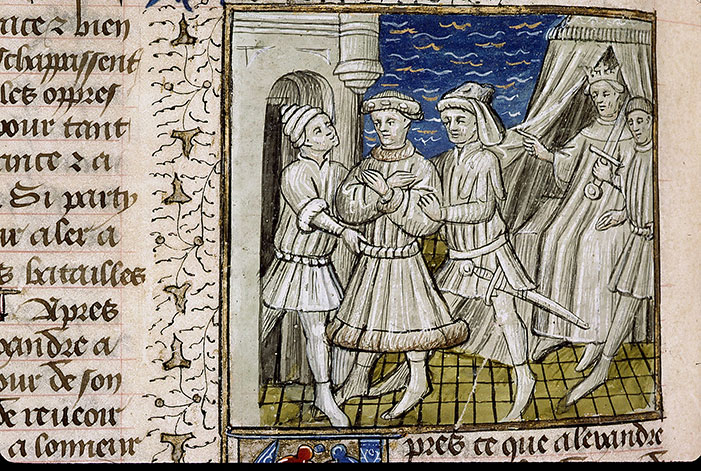 race ⁊ bien
schappassent
les oppres
pour tant
ance ⁊ a
Si party
ir aler a
s batailles
Apres
xandre a
our de son
de reueoir
a lonneur
pres ce que alexandre